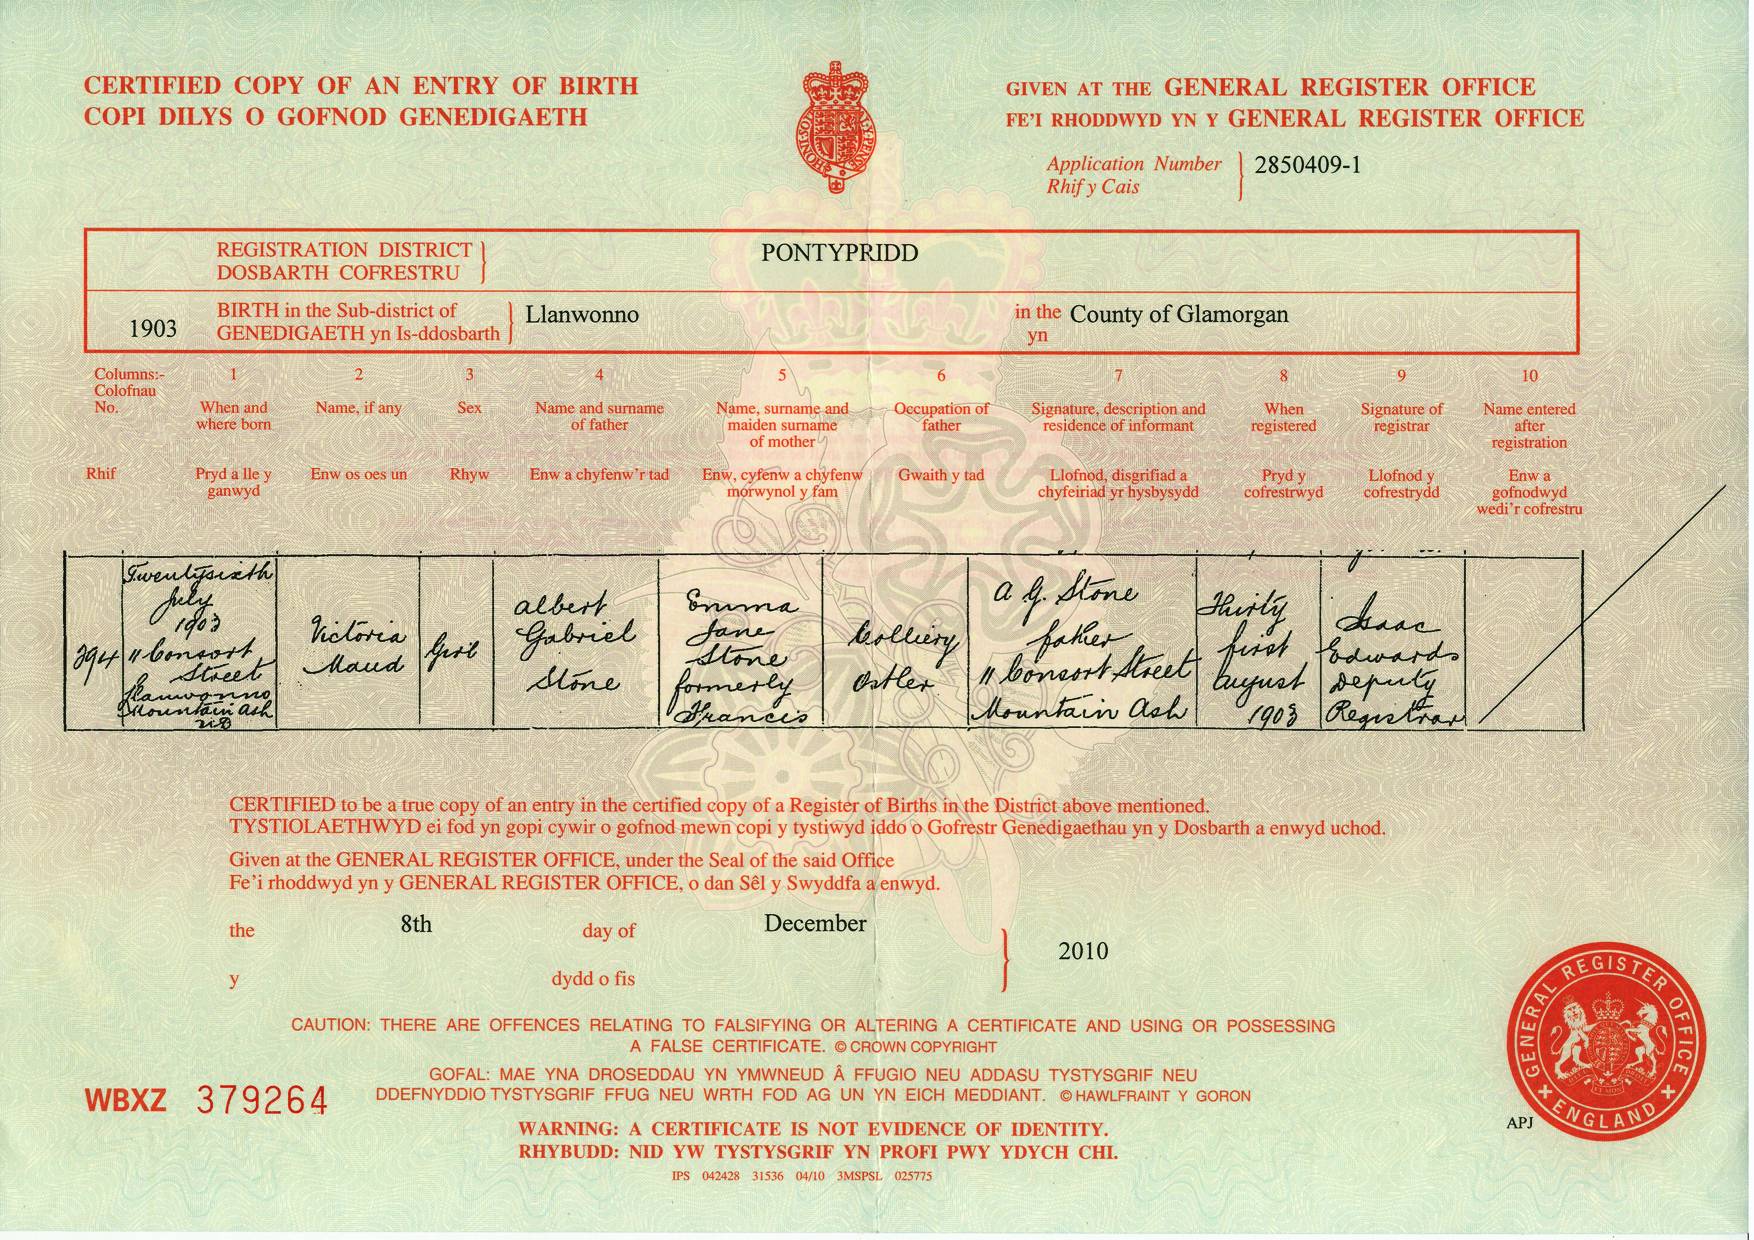 CERTIFIED COPY OF AN ENTRY OF BIRTH
COPI DILYS O GOFNOD GENEDIGAETH
GIVEN AT THE GENERAL REGISTER OFFICE
FE'I RHODDWYD YN Y GENERAL REGISTER OFFICE
Application Number
Rhif y Cais
2850409-1
REGISTRATION DISTRICT
DOSBARTH COFRESTRU
PONTYPRIDD
1903
BIRTH in the Sub-district of
GENEDIGAETH yn Is-ddosbarth
Llanwonno
in the
yn
County of Glamorgan
Columns:-
Colofnau
No.
Rhif
1
When and
where born
Pryd a lle y
ganwyd
2
Name, if any
Enw os oes un
3
Sex
Rhyw
4
Name and surname
of father
Enw a chyfenw'r tad
5
Name, surname and
maiden surname
of mother
Enw, cyfenw a chyfenw
morwynol y fam
6
Occupation of
father
Gwaith y tad
7
Signature, description and
residence of informant
Llofnod, disgrifiad a
chyfeiriad yr hysbysydd
8
When
registered
Pryd y
cofrestrwyd
9
Signature of
registrar
Llofnod y
cofrestrydd
10
Name entered
after
registration
Enw a
gofnodwyd
wedi'r cofrestru
394
Twentysixth
July
1903
11 Consort
Street
Llanwonno
Mountain Ash
Victoria
Maud
Girl
Albert
Gabriel
Stone
Emma
Jane
Stone
formerly
Francis
Colliery
Ostler
A G. Stone
father
11 Consort Street
Mountain Ash
Thirty
first
August
1903
Isaac
Edwards
Deputy
Registrar
CERTIFIED to be a true copy of an entry in the certified copy of a Register of Births in the District above mentioned.
TYSTIOLAETHWYD ei fod yn gopi cywir o gofnod mewn copi y tystiwyd iddo o Gofrestr Genedigaethau yn y Dosbarth a enwyd uchod.
Given at the GENERAL REGISTER OFFICE, under the Seal of the said Office
Fe'i rhoddwyd yn y GENERAL REGISTER OFFICE, o dan Sêl y Swyddfa a enwyd.
the 8th day of December
y dydd o fis
2010
CAUTION: THERE ARE OFFENCES RELATING TO FALSIFYING OR ALTERING A CERTIFICATE AND USING OR POSSESSING
A FALSE CERTIFICATE. © CROWN COPYRIGHT
GOFAL: MAE YNA DROSEDDAU YN YMWNEUD Â FFUGIO NEU ADDASU TYSTYSGRIF NEU
DDEFNYDDIO TYSTYSGRIF FFUG NEU WRTH FOD AG UN YN EICH MEDDIANT. © HAWLFRAINT Y GORON
WBXZ 379264
WARNING: A CERTIFICATE IS NOT EVIDENCE OF IDENTITY.
RHYBUDD: NID YW TYSTYSGRIF YN PROFI PWY YDYCH CHI.
IPS 042428 31536 04/10 3MSPSL 025775
GENERAL REGISTER OFFICE
ENGLAND
APJ